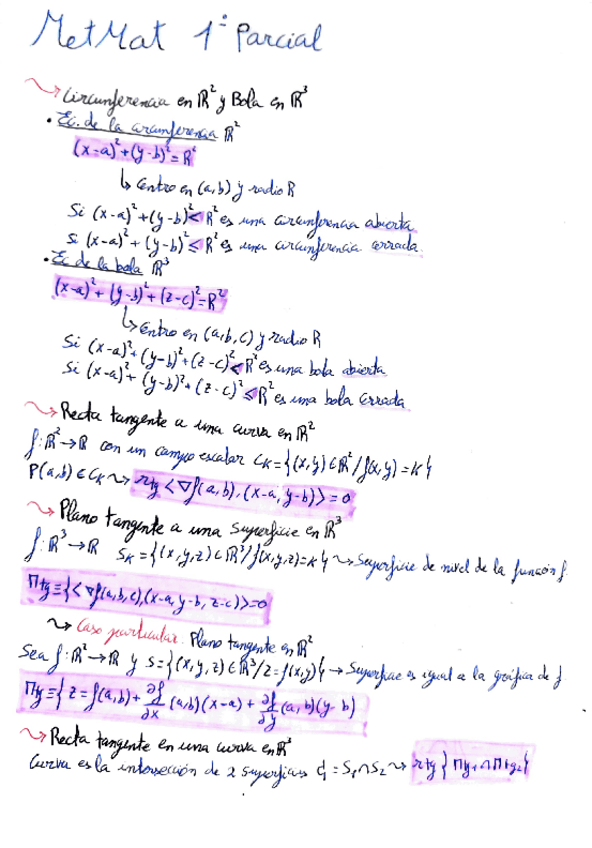 MetMat 1º Parcial
Circunferencia en ℝ² y Bola en ℝ³
• Ec. de la circunferencia ℝ²
(x-a)²+(y-b)²=R²
↳ Centro en (a,b) y radio R
Si (x-a)²+(y-b)²<R² es una circunferencia abierta.
Si (x-a)²+(y-b)²≤R² es una circunferencia cerrada.
• Ec. de la bola ℝ³
(x-a)²+(y-b)²+(z-c)²=R²
↳ Centro en (a,b,c) y radio R
Si (x-a)²+(y-b)²+(z-c)²<R² es una bola abierta.
Si (x-a)²+(y-b)²+(z-c)²≤R² es una bola cerrada.
Recta tangente a una curva en ℝ²
f:ℝ²→ℝ con un campo escalar Cₖ={(x,y)∈ℝ²/f(x,y)=K}
P(a,b)∈Cₖ ⇝ rtg <∇f(a,b),(x-a,y-b)>=0
Plano tangente a una superficie en ℝ³
f:ℝ³→ℝ Sₖ={(x,y,z)∈ℝ³/f(x,y,z)=K} ⇝ Superficie de nivel de la función f
Πtg≡{<∇f(a,b,c),(x-a,y-b,z-c)>=0
⇝ Caso particular. Plano tangente en ℝ²
Sea f:ℝ²→ℝ y S={(x,y,z)∈ℝ³/z=f(x,y)} → Superficie es igual a la gráfica de f
Πtg≡{z=f(a,b)+∂f/∂x(a,b)(x-a)+∂f/∂y(a,b)(y-b)
Recta tangente en una curva en ℝ³
Curva es la intersección de 2 superficies C=S₁∩S₂ ⇝ rtg{Πtg₁∩Πtg₂}